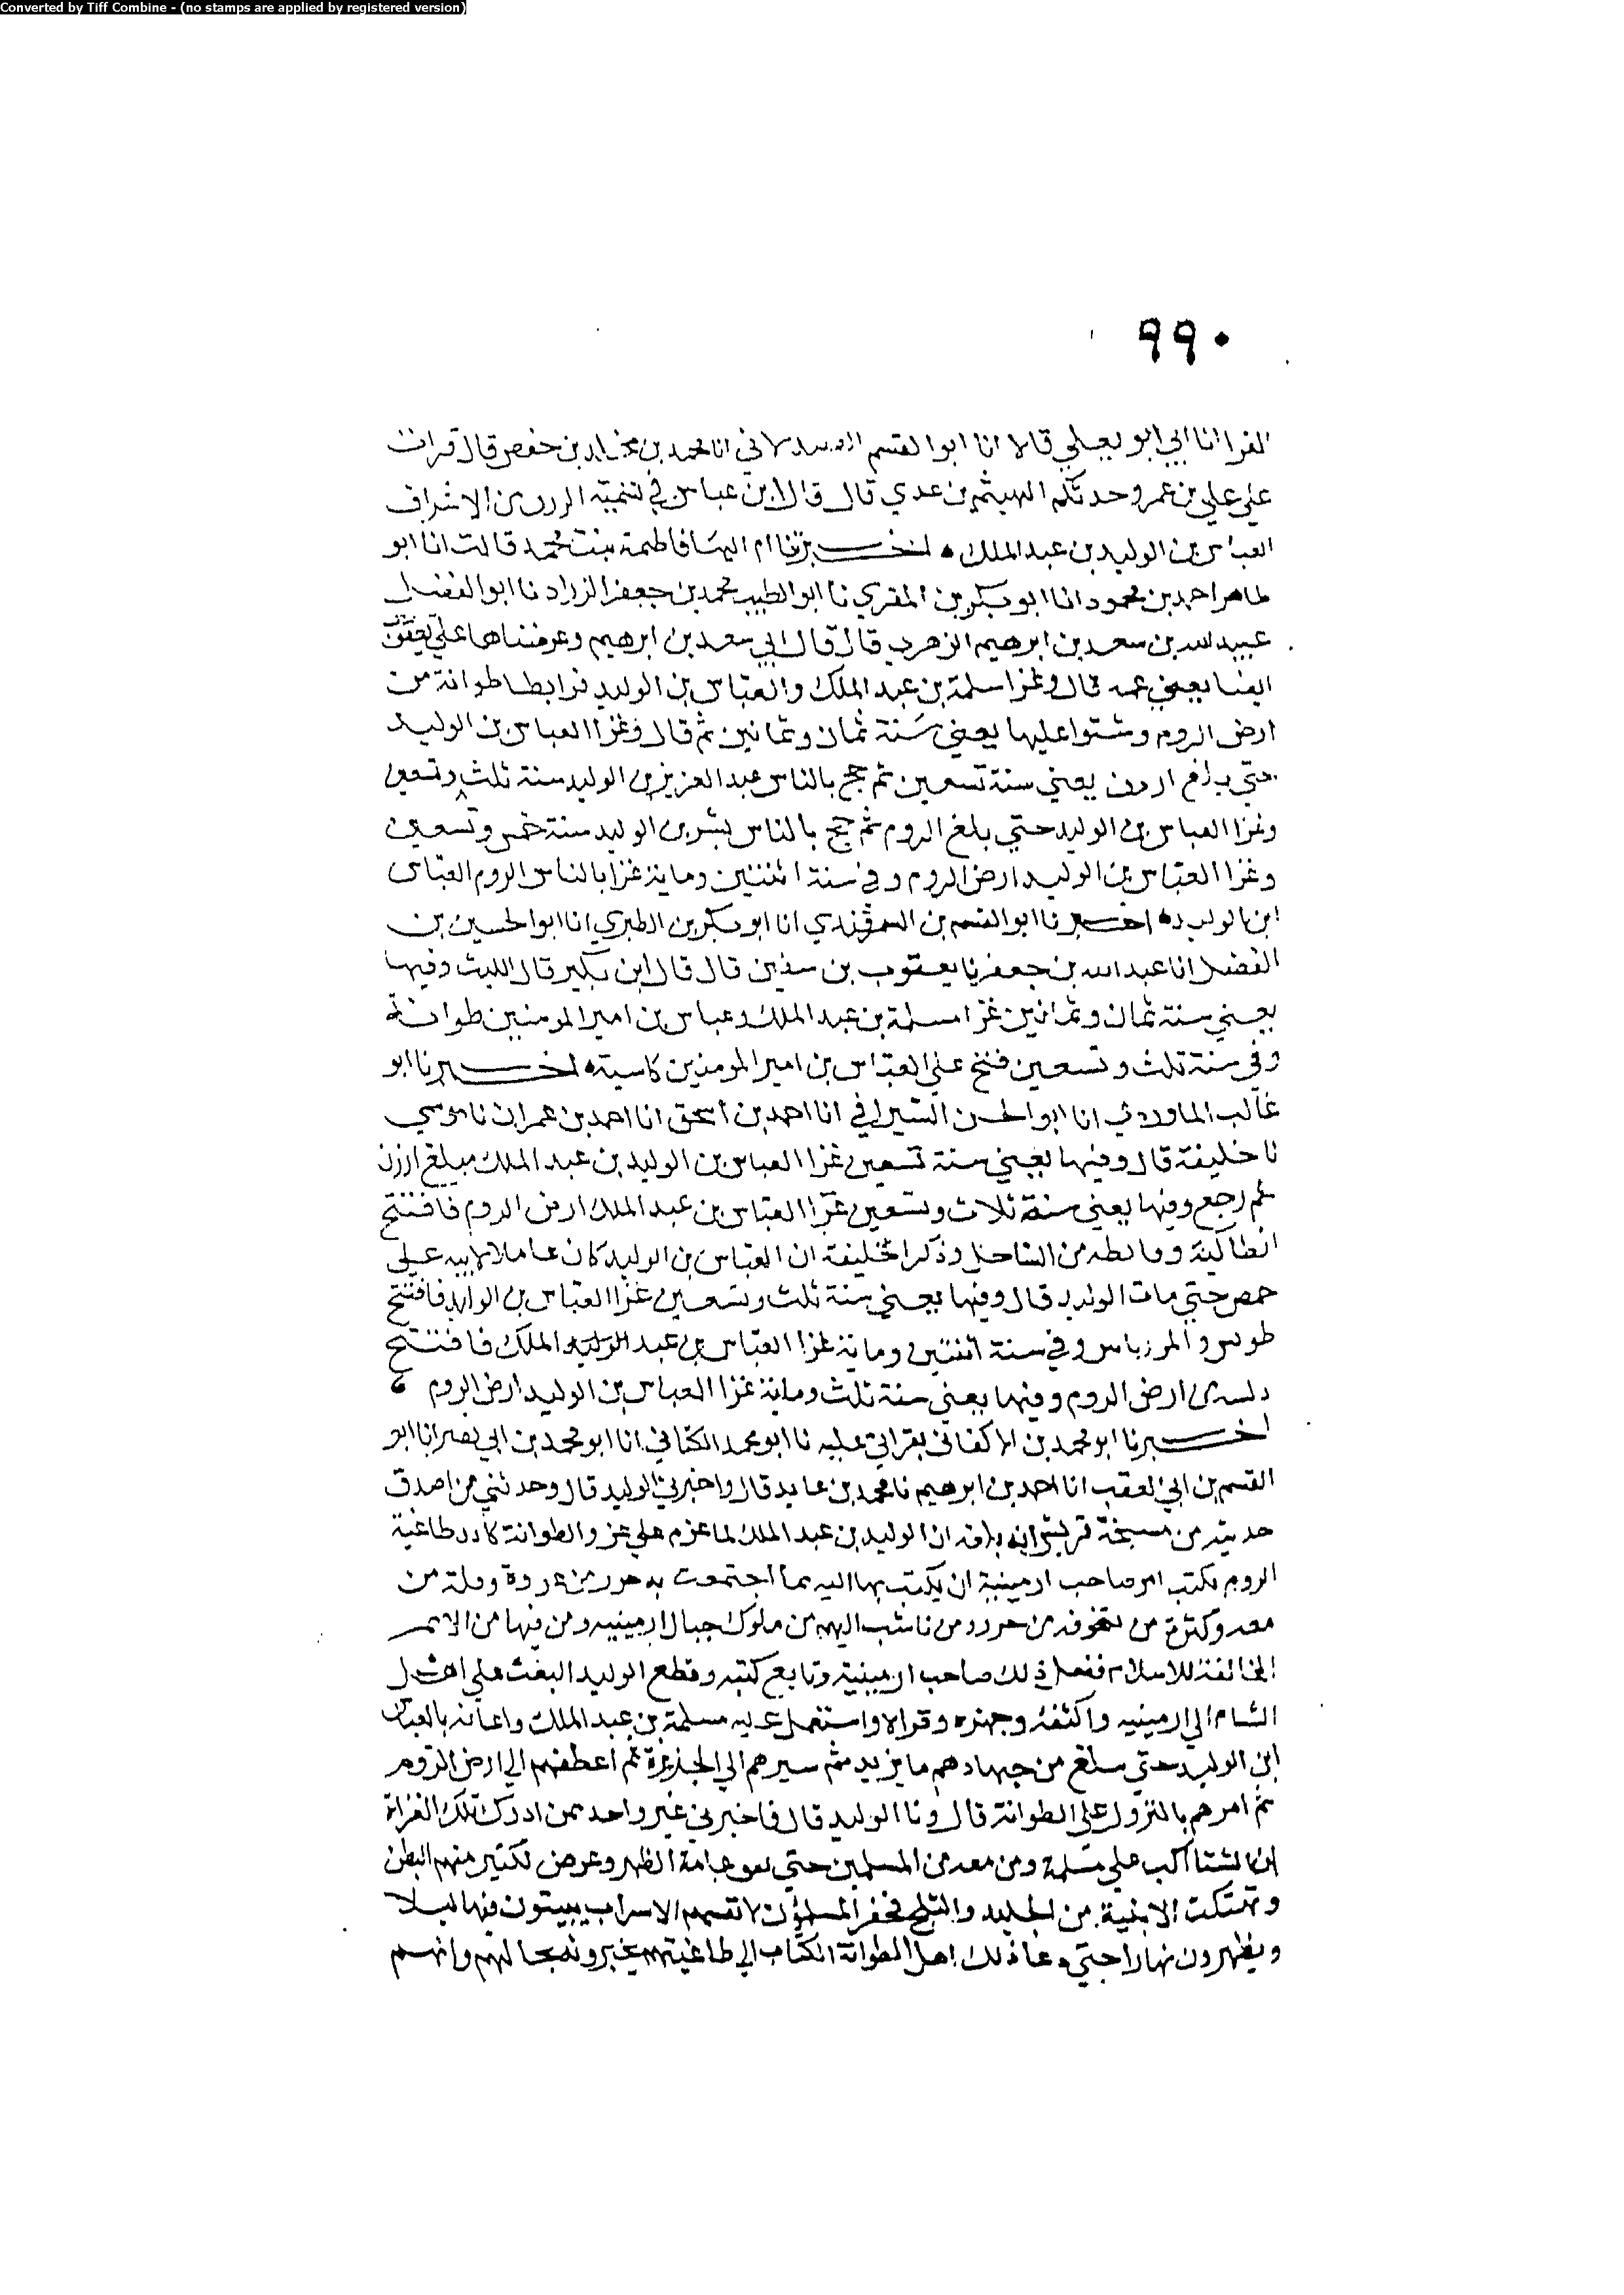 Converted by Tiff Combine - (no stamps are applied by registered version)
٩٩٠
الفرا انا ابي ابو يعلي قالا انا ابو القسم الصيدلاني انا محمد بن مخلد بن حفص قال قرات
علي علي بن عمرو حدثكم الهيثم بن عدي قال قال ابن عباس في تسمية الزرق من الاشراف
العباس بن الوليد بن عبد الملك • اخبرتنا ام البها فاطمة بنت محمد قالت انا ابو
طاهر احمد بن محمود انا ابو بكر بن المقري نا ابو الطيب محمد بن جعفر الزراد نا ابو الفضل
عبيد الله بن سعد بن ابرهيم الزهري قال قال ابي سعد بن ابرهيم وعرضناها علي يعقوب
ايضا يعني عمه قال وغزا مسلمة بن عبد الملك والعباس بن الوليد فرابطا طوانة من
ارض الروم وشتوا عليها يعني سنة ثمان وثمانين ثم قال وغزا العباس بن الوليد
حتي بلغ ارزن يعني سنة تسعين ثم حج بالناس عبد العزيز بن الوليد سنة ثلث وتسعين
وغزا العباس بن الوليد حتي بلغ الروم ثم حج بالناس بشر بن الوليد سنة خمس وتسعين
وغزا العباس بن الوليد ارض الروم وفي سنة اثنتين وماية غزا بالناس الروم العباس
ابن الوليد • اخبرنا ابو القسم بن السمرقندي انا ابو بكر بن الطبري انا ابو الحسين بن
الفضل انا عبد الله بن جعفر نا يعقوب بن سفين قال قال ابن بكير قال الليث وفيها
يعني سنة ثمان وثمانين غزا مسلمة بن عبد الملك وعباس بن امير المومنين طوانة
وفي سنة ثلث وتسعين فتح علي العباس بن امير المومنين كاسية • اخبرنا ابو
غالب الماوردي انا ابو الحسن السيرافي انا احمد بن اسحق انا احمد بن عمران نا موسي
نا خليفة قال وفيها يعني سنة تسعين غزا العباس بن الوليد بن عبد الملك فبلغ ارزن
ثم رجع وفيها يعني سنة ثلاث وتسعين غزا العباس بن عبد الملك ارض الروم فافتتح
انطاكية من الساحل وذكر خليفة ان العباس بن الوليد كان عاملا لابيه علي
حمص حتي مات الوليد قال وفيها يعني سنة ثلث وتسعين غزا العباس بن الوليد فافتتح
طوس والمرزباس وفي سنة اثنتين وماية غزا العباس بن عبد الوليد الملك فافتتح
دلسه ارض الروم وفيها يعني سنة ثلث وماية غزا العباس بن الوليد ارض الروم •
اخبرنا ابو محمد بن الاكفاني بقراتي عليه نا ابو محمد الكتاني انا ابو محمد بن ابي نصر انا ابو
القسم بن ابي العقب انا احمد بن ابرهيم نا محمد بن عايد قال واخبرني الوليد قال وحدثني من اصدق
حديثه من مشيخة قريش انه بلغه ان الوليد بن عبد الملك لما عزم علي غزو الطوانة كادد طاغية
الروم بكتب امر صاحب ارمينية ان يكتب بها اليه بما اجتمعت به خزر من غزوة وقلة من
معه وكثرة من تخوفه من خزر ومن ناشب اليهم من ملوك جبال ارمينيه ومن فيها من الامم
المخالفة للاسلام ففعل ذلك صاحب ارمينية وتابع كتبه وقطع الوليد البعث علي اهل
الشام الي ارمينيه واكثفه وجهزه وقواه واستعمل عليه مسلمة بن عبد الملك واعانه بالعباس
ابن الوليد حتي بلغ من جهادهم ما يريد ثم سيرهم الي الجزيرة ثم اعطفهم الي ارض الروم
ثم امرهم بالنزول علي الطوانة قال ونا الوليد قال فاخبرني غير واحد ممن ادرك تلك الغزاة
ان الشتا اكب علي مسلمة ومن معه من المسلمين حتي نفق عامة الظهر وعرض لكثير منهم البطن
وتهتكت الابنية من الجليد والثلج فحفر المسلمون لانفسهم الاسراب يبيتون فيها ليلا
ويظهرون نهارا حتي دعا ذلك اهل الطوانة الكتاب الي طاغيتهم يخبرونه بحالهم وانهم